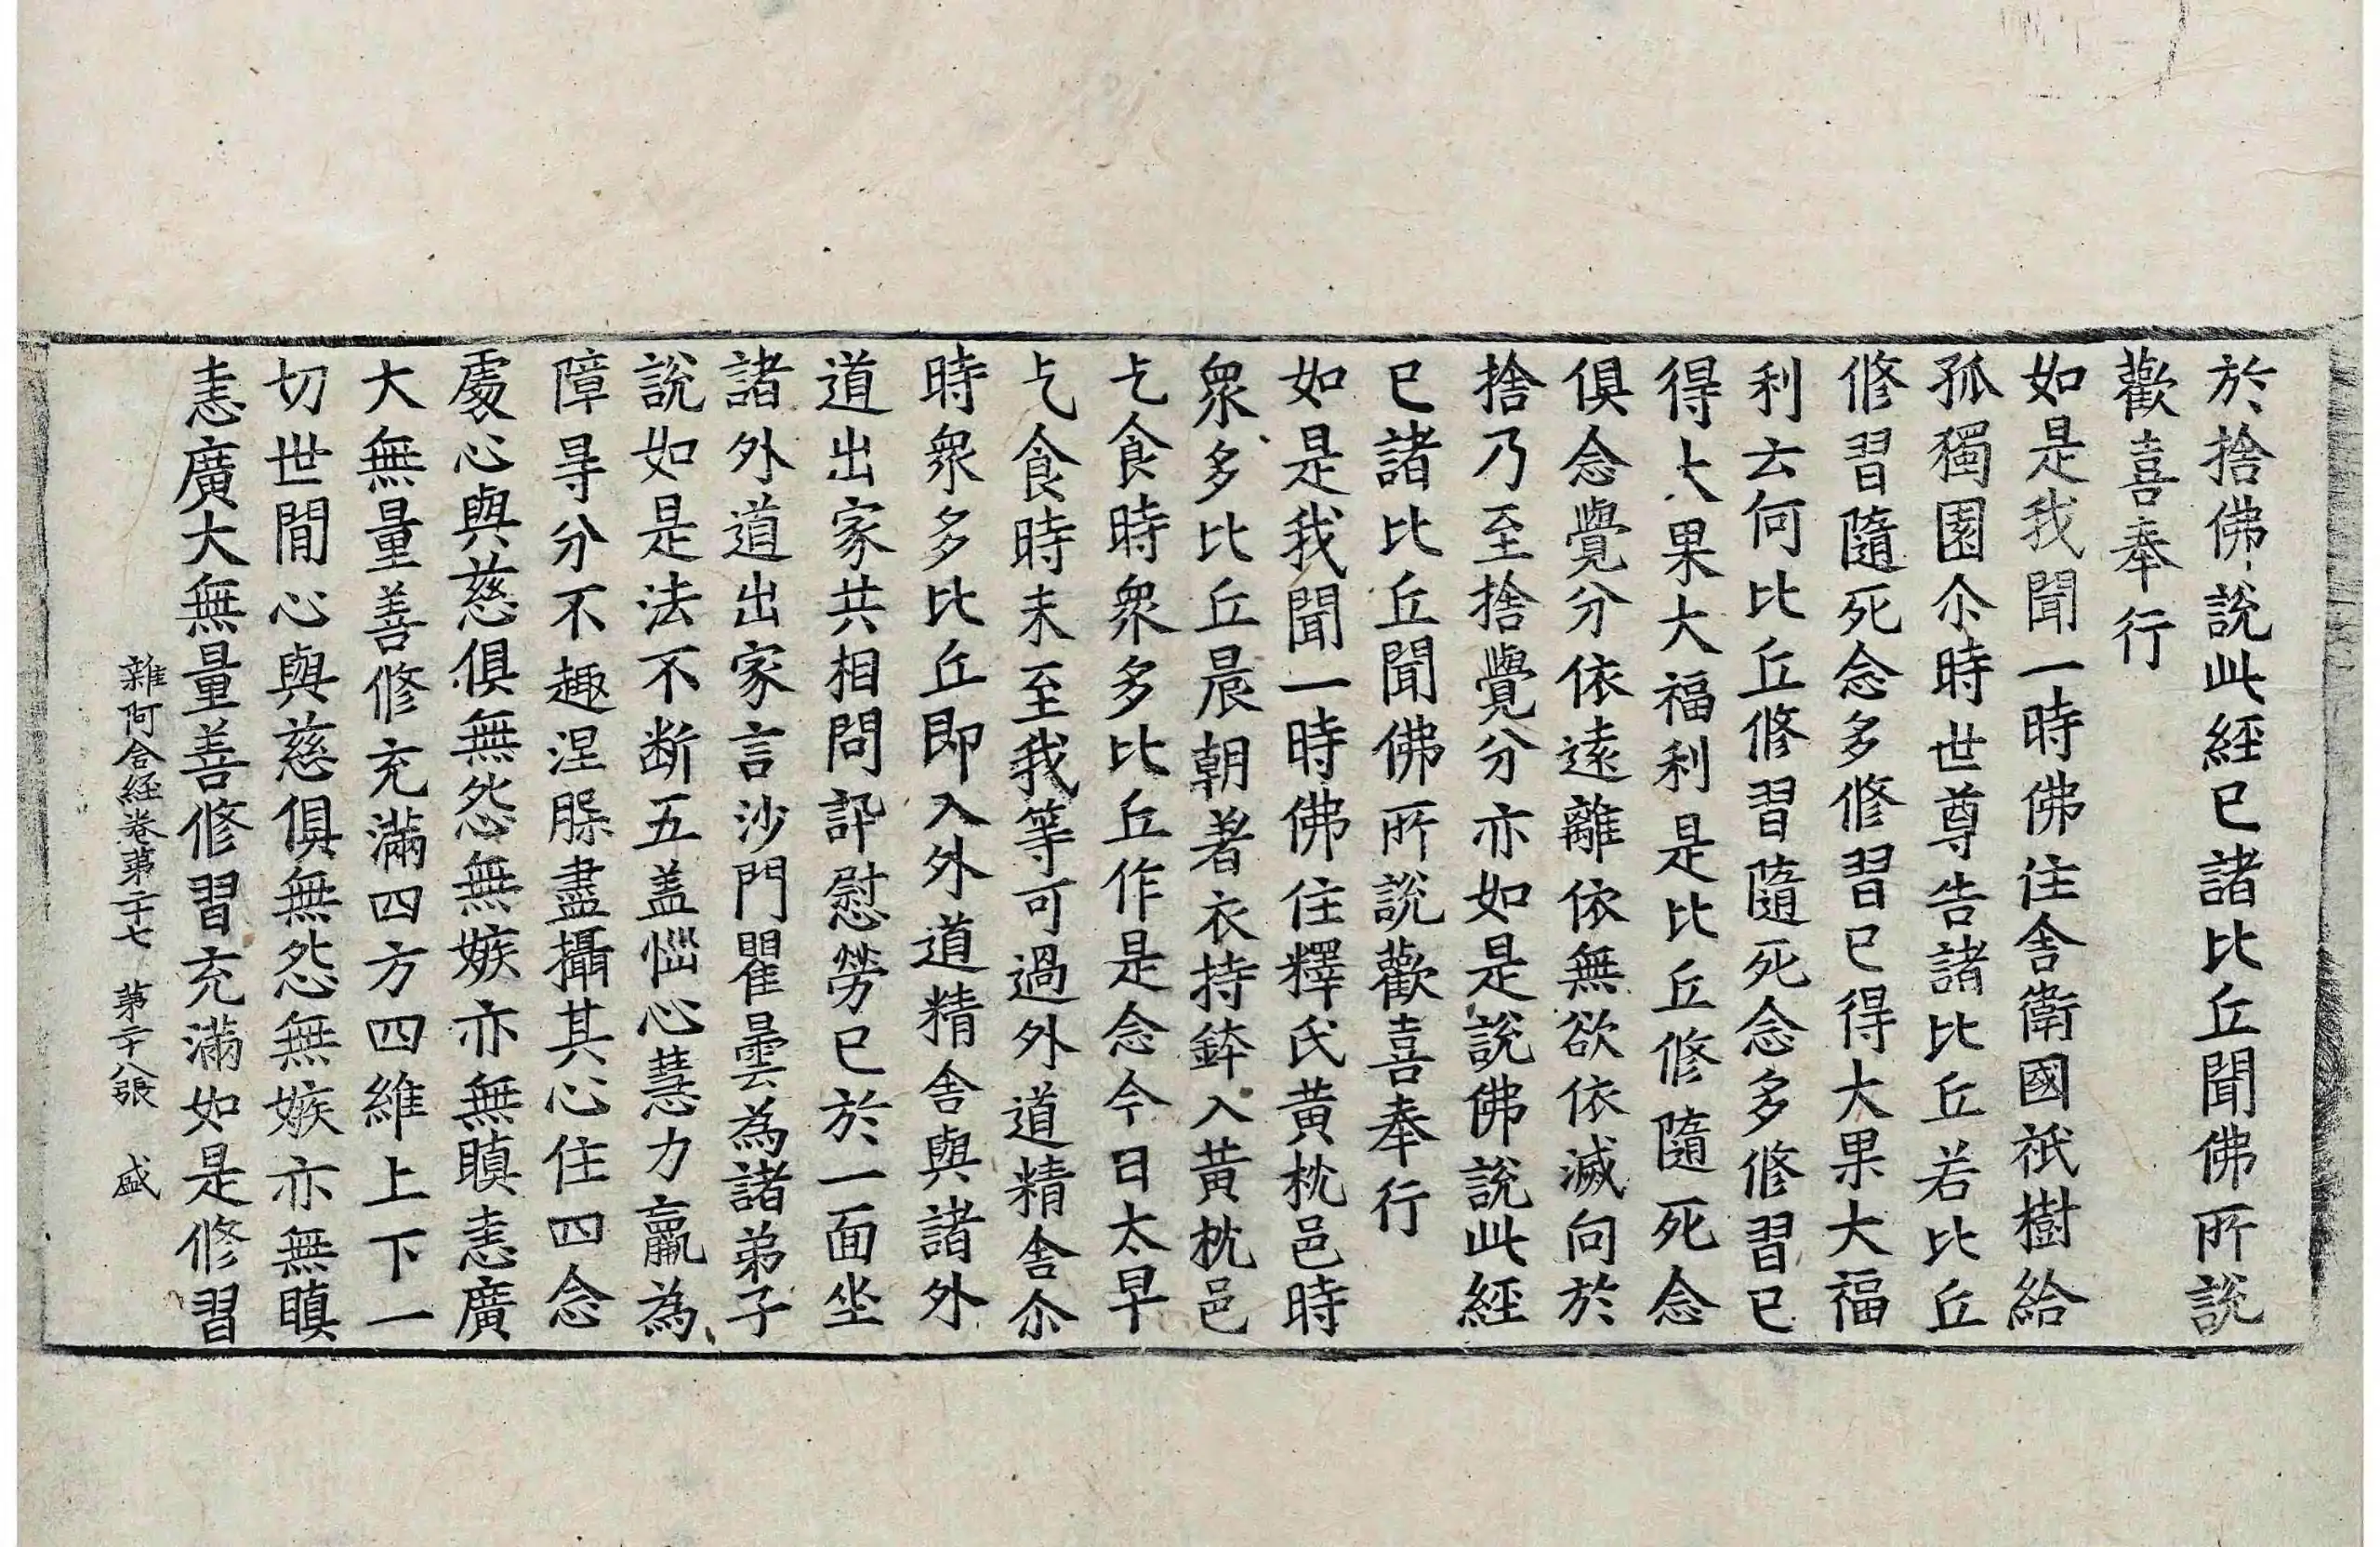 於捨佛說此經已諸比丘聞佛所說
歡喜奉行
如是我聞一時佛住舍衛國祇樹給
孤獨園尒時世尊告諸比丘若比丘
修習隨死念多修習已得大果大福
利云何比丘修習隨死念多修習已
得大果大福利是比丘修隨死念
俱念覺分依遠離依無欲依滅向於
捨乃至捨覺分亦如是說佛說此經
已諸比丘聞佛所說歡喜奉行
如是我聞一時佛住釋氏黃枕邑時
衆多比丘晨朝著衣持鉢入黃枕邑
乞食時衆多比丘作是念今日太早
乞食時未至我等可過外道精舍尒
時衆多比丘即入外道精舍與諸外
道出家共相問訊慰勞已於一面坐
諸外道出家言沙門瞿曇為諸弟子
說如是法不斷五盖惱心慧力羸為
障㝵分不趣涅槃盡攝其心住四念
處心與慈俱無怨無嫉亦無瞋恚廣
大無量善修充滿四方四維上下一
切世閒心與慈俱無怨無嫉亦無瞋
恚廣大無量善修習充滿如是修習
雜阿含經卷第二十七 第二十八張 盛